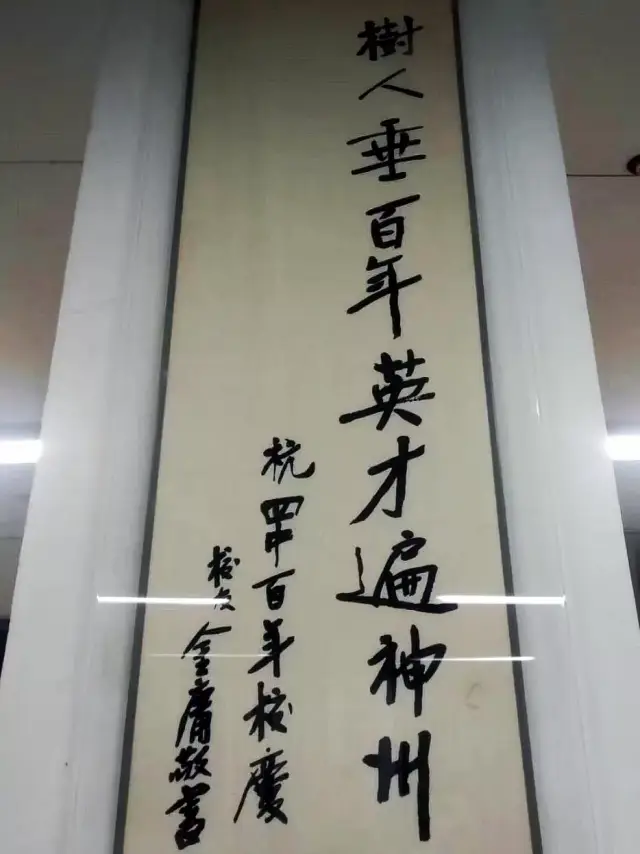 樹人垂百年英才遍神州
杭四中百年校慶
校友金庸敬書